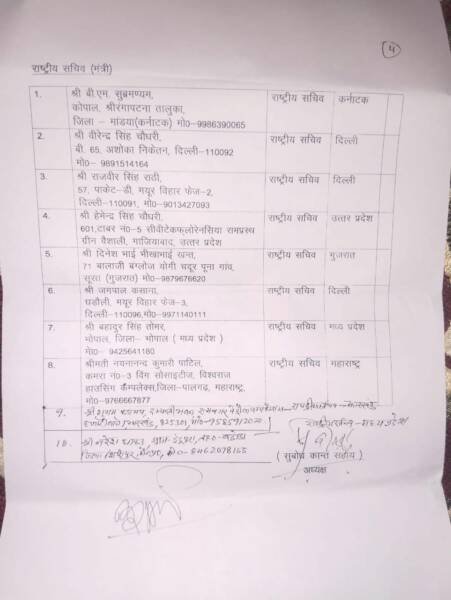 4
राष्ट्रीय सचिव (मंत्री)
1. श्री बी.एम. सुब्रमण्यम, राष्ट्रीय सचिव कर्नाटक
कोपाल, श्रीरंगापटना तालुका,
जिला – मांडया(कर्नाटक) मो0–9986390065
2. श्री वीरेन्द्र सिंह चौधरी, राष्ट्रीय सचिव दिल्ली
बी. 65, अशोका निकेतन, दिल्ली–110092
मो0– 9891514164
3. श्री राजवीर सिंह राठी, राष्ट्रीय सचिव दिल्ली
57, पाकेट–डी, मयूर विहार फेज–2,
दिल्ली–110091, मो0–9013427093
4. श्री हेमेन्द्र सिंह चौधरी, राष्ट्रीय सचिव उत्तर प्रदेश
601,टावर नं0–5 सीवीटेकफ्लोरेनसिया रामप्रस्थ
ग्रीन वैशाली, गाजियाबाद, उत्तर प्रदेश
5. श्री दिनेश भाई भीखाभाई खन्त, राष्ट्रीय सचिव गुजरात
71 बालाजी बंग्लोज योगी चदूर पूना गांव,
सूरत (गुजरात) मो0–9879676620
6. श्री जगपाल कसाना, राष्ट्रीय सचिव दिल्ली
घडौली, मयूर विहार फेज–3,
दिल्ली–110096,मो0–9971140111
7. श्री बहादुर सिंह तोमर, राष्ट्रीय सचिव मध्य प्रदेश
भोपाल, जिला– भोपाल ( मध्य प्रदेश )
मो0– 9425641180
8. श्रीमती नयनानन्द कुमारी पाटिल, राष्ट्रीय सचिव महाराष्ट्र
कमरा नं0–3 विंग सोसाइटीज, विश्वराज
हाउसिंग कैम्पलेक्स,जिला–पालगढ़, महाराष्ट्र,
मो0–9766667877
9. श्री
825301, मो0-
10. श्री नरेश
मो0-8462078165
( सुबोध कान्त सहाय )
अध्यक्ष